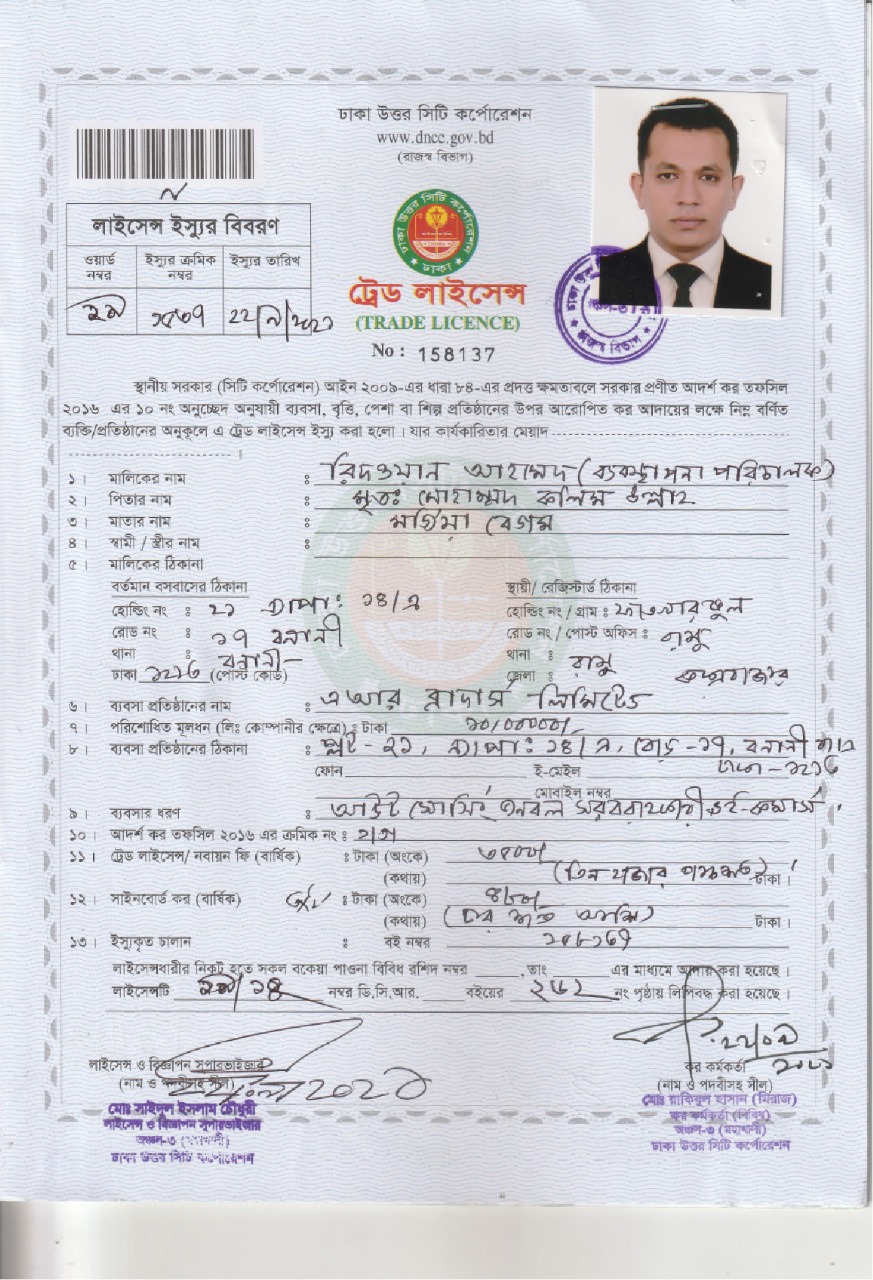 ঢাকা উত্তর সিটি কর্পোরেশন
www.dncc.gov.bd
(রাজস্ব বিভাগ)
লাইসেন্স ইস্যুর বিবরণ
ওয়ার্ড নম্বর
ইস্যুর ক্রমিক নম্বর
ইস্যুর তারিখ
ঢাকা উত্তর সিটি কর্পোরেশন
ঢাকা
ট্রেড লাইসেন্স
(TRADE LICENCE)
No : 158137
স্থানীয় সরকার (সিটি কর্পোরেশন) আইন ২০০৯-এর ধারা ৮৪-এর প্রদত্ত ক্ষমতাবলে সরকার প্রণীত আদর্শ কর তফসিল
২০১৬ এর ১০ নং অনুচ্ছেদ অনুযায়ী ব্যবসা, বৃত্তি, পেশা বা শিল্প প্রতিষ্ঠানের উপর আরোপিত কর আদায়ের লক্ষে নিম্ন বর্ণিত
ব্যক্তি/প্রতিষ্ঠানের অনুকূলে এ ট্রেড লাইসেন্স ইস্যু করা হলো। যার কার্যকারিতার মেয়াদ
১। মালিকের নাম : রিদওয়ান আহমেদ (ব্যবস্থাপনা পরিচালক)
২। পিতার নাম : মৃতঃ মোহাম্মদ কলিম উল্লাহ
৩। মাতার নাম : বেগম
৪। স্বামী / স্ত্রীর নাম :
৫। মালিকের ঠিকানা
বর্তমান বসবাসের ঠিকানা স্থায়ী/ রেজিস্টার্ড ঠিকানা
হোল্ডিং নং : ২১ এ্যাপা: ১৪/এ হোল্ডিং নং / গ্রাম :
রোড নং : ১৭ বনানী রোড নং / পোস্ট অফিস : রামু
থানা : বনানী থানা : রামু
ঢাকা ১২১৩ (পোস্ট কোড) জেলা : কক্সবাজার
৬। ব্যবসা প্রতিষ্ঠানের নাম : এআর ব্রাদার্স লিমিটেড
৭। পরিশোধিত মূলধন (লিঃ কোম্পানীর ক্ষেত্রে) : টাকা
৮। ব্যবসা প্রতিষ্ঠানের ঠিকানা : প্লট-২১, এ্যাপা: ১৪/এ, রোড-১৭, বনানী বা/এ
ফোন ই-মেইল ঢাকা-১২১৩
মোবাইল নম্বর
৯। ব্যবসার ধরণ : আউট সোর্সিং জনবল সরবরাহকারী ই-কমার্স
১০। আদর্শ কর তফসিল ২০১৬ এর ক্রমিক নং :
১১। ট্রেড লাইসেন্স/ নবায়ন ফি (বার্ষিক) : টাকা (অংকে) ৩৫০০/
(কথায়) (তিন হাজার পাঁচশত) টাকা।
১২। সাইনবোর্ড কর (বার্ষিক) : টাকা (অংকে) ৪৮০/
(কথায়) (চার শত আশি) টাকা।
১৩। ইস্যুকৃত চালান : বই নম্বর
লাইসেন্সধারীর নিকট হতে সকল বকেয়া পাওনা বিবিধ রশিদ নম্বর ,তাং এর মাধ্যমে আদায় করা হয়েছে।
লাইসেন্সটি নম্বর ডি.সি.আর. বইয়ের নং পৃষ্ঠায় লিপিবদ্ধ করা হয়েছে।
লাইসেন্স ও বিজ্ঞাপন সুপারভাইজার
(নাম ও পদবীসহ সীল)
মোঃ সাইদুল ইসলাম চৌধুরী
লাইসেন্স ও বিজ্ঞাপন সুপারভাইজার
অঞ্চল-৩ (মহাখালী)
ঢাকা উত্তর সিটি কর্পোরেশন
কর কর্মকর্তা
(নাম ও পদবীসহ সীল)
মোঃ রাকিবুল হাসান (মিরাজ)
কর কর্মকর্তা (বিবিধ)
অঞ্চল-৩ (মহাখালী)
ঢাকা উত্তর সিটি কর্পোরেশন